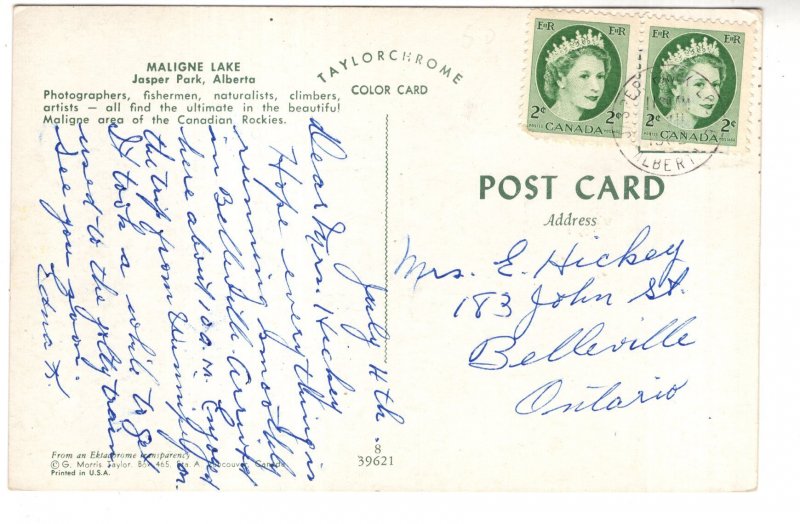 MALIGNE LAKE
Jasper Park, Alberta
Photographers, fishermen, naturalists, climbers,
artists — all find the ultimate in the beautiful
Maligne area of the Canadian Rockies.
TAYLORCHROME
COLOR CARD
EIIR
EIIR
2¢ 2¢
POSTES CANADA POSTAGE
2¢ 2¢
POSTES CANADA POSTAGE
JASPER
ALBERTA
POST CARD
Address
Mrs. E. Hickey
183 John St.
Belleville
Ontario
July 4th.
Dear Mrs. Hickey
Hope everything is
running smoothly
in Belleville. Arrived
here about 10 a.m. Enjoyed
the trip from
It took a while to get
used to the jolly train
See you soon.
Edna K.
From an Ektachrome transparency
© G. Morris Taylor. Box 465, Sta. A Vancouver, Canada
Printed in U.S.A.
8
39621